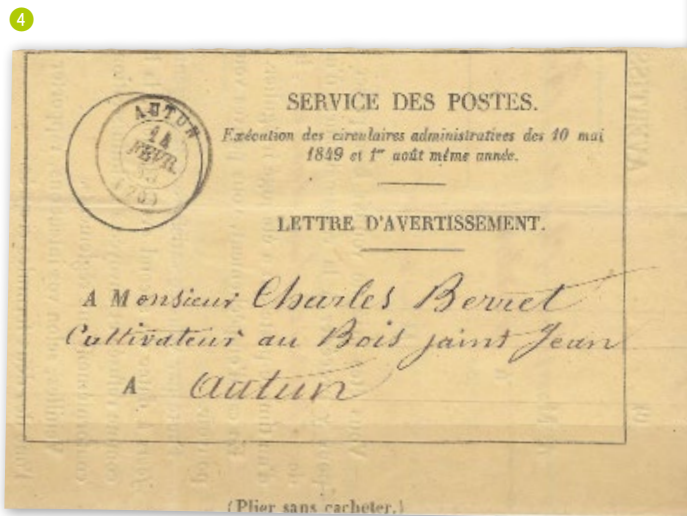 4
SERVICE DES POSTES.
Exécution des circulaires administratives des 10 mai
1849 et 1er août même année.
AUTUN
14
FEVR.
(70)
LETTRE D'AVERTISSEMENT.
A Monsieur Charles Berret
Cultivateur au Bois saint Jean
A Autun
(Plier sans cacheter.)